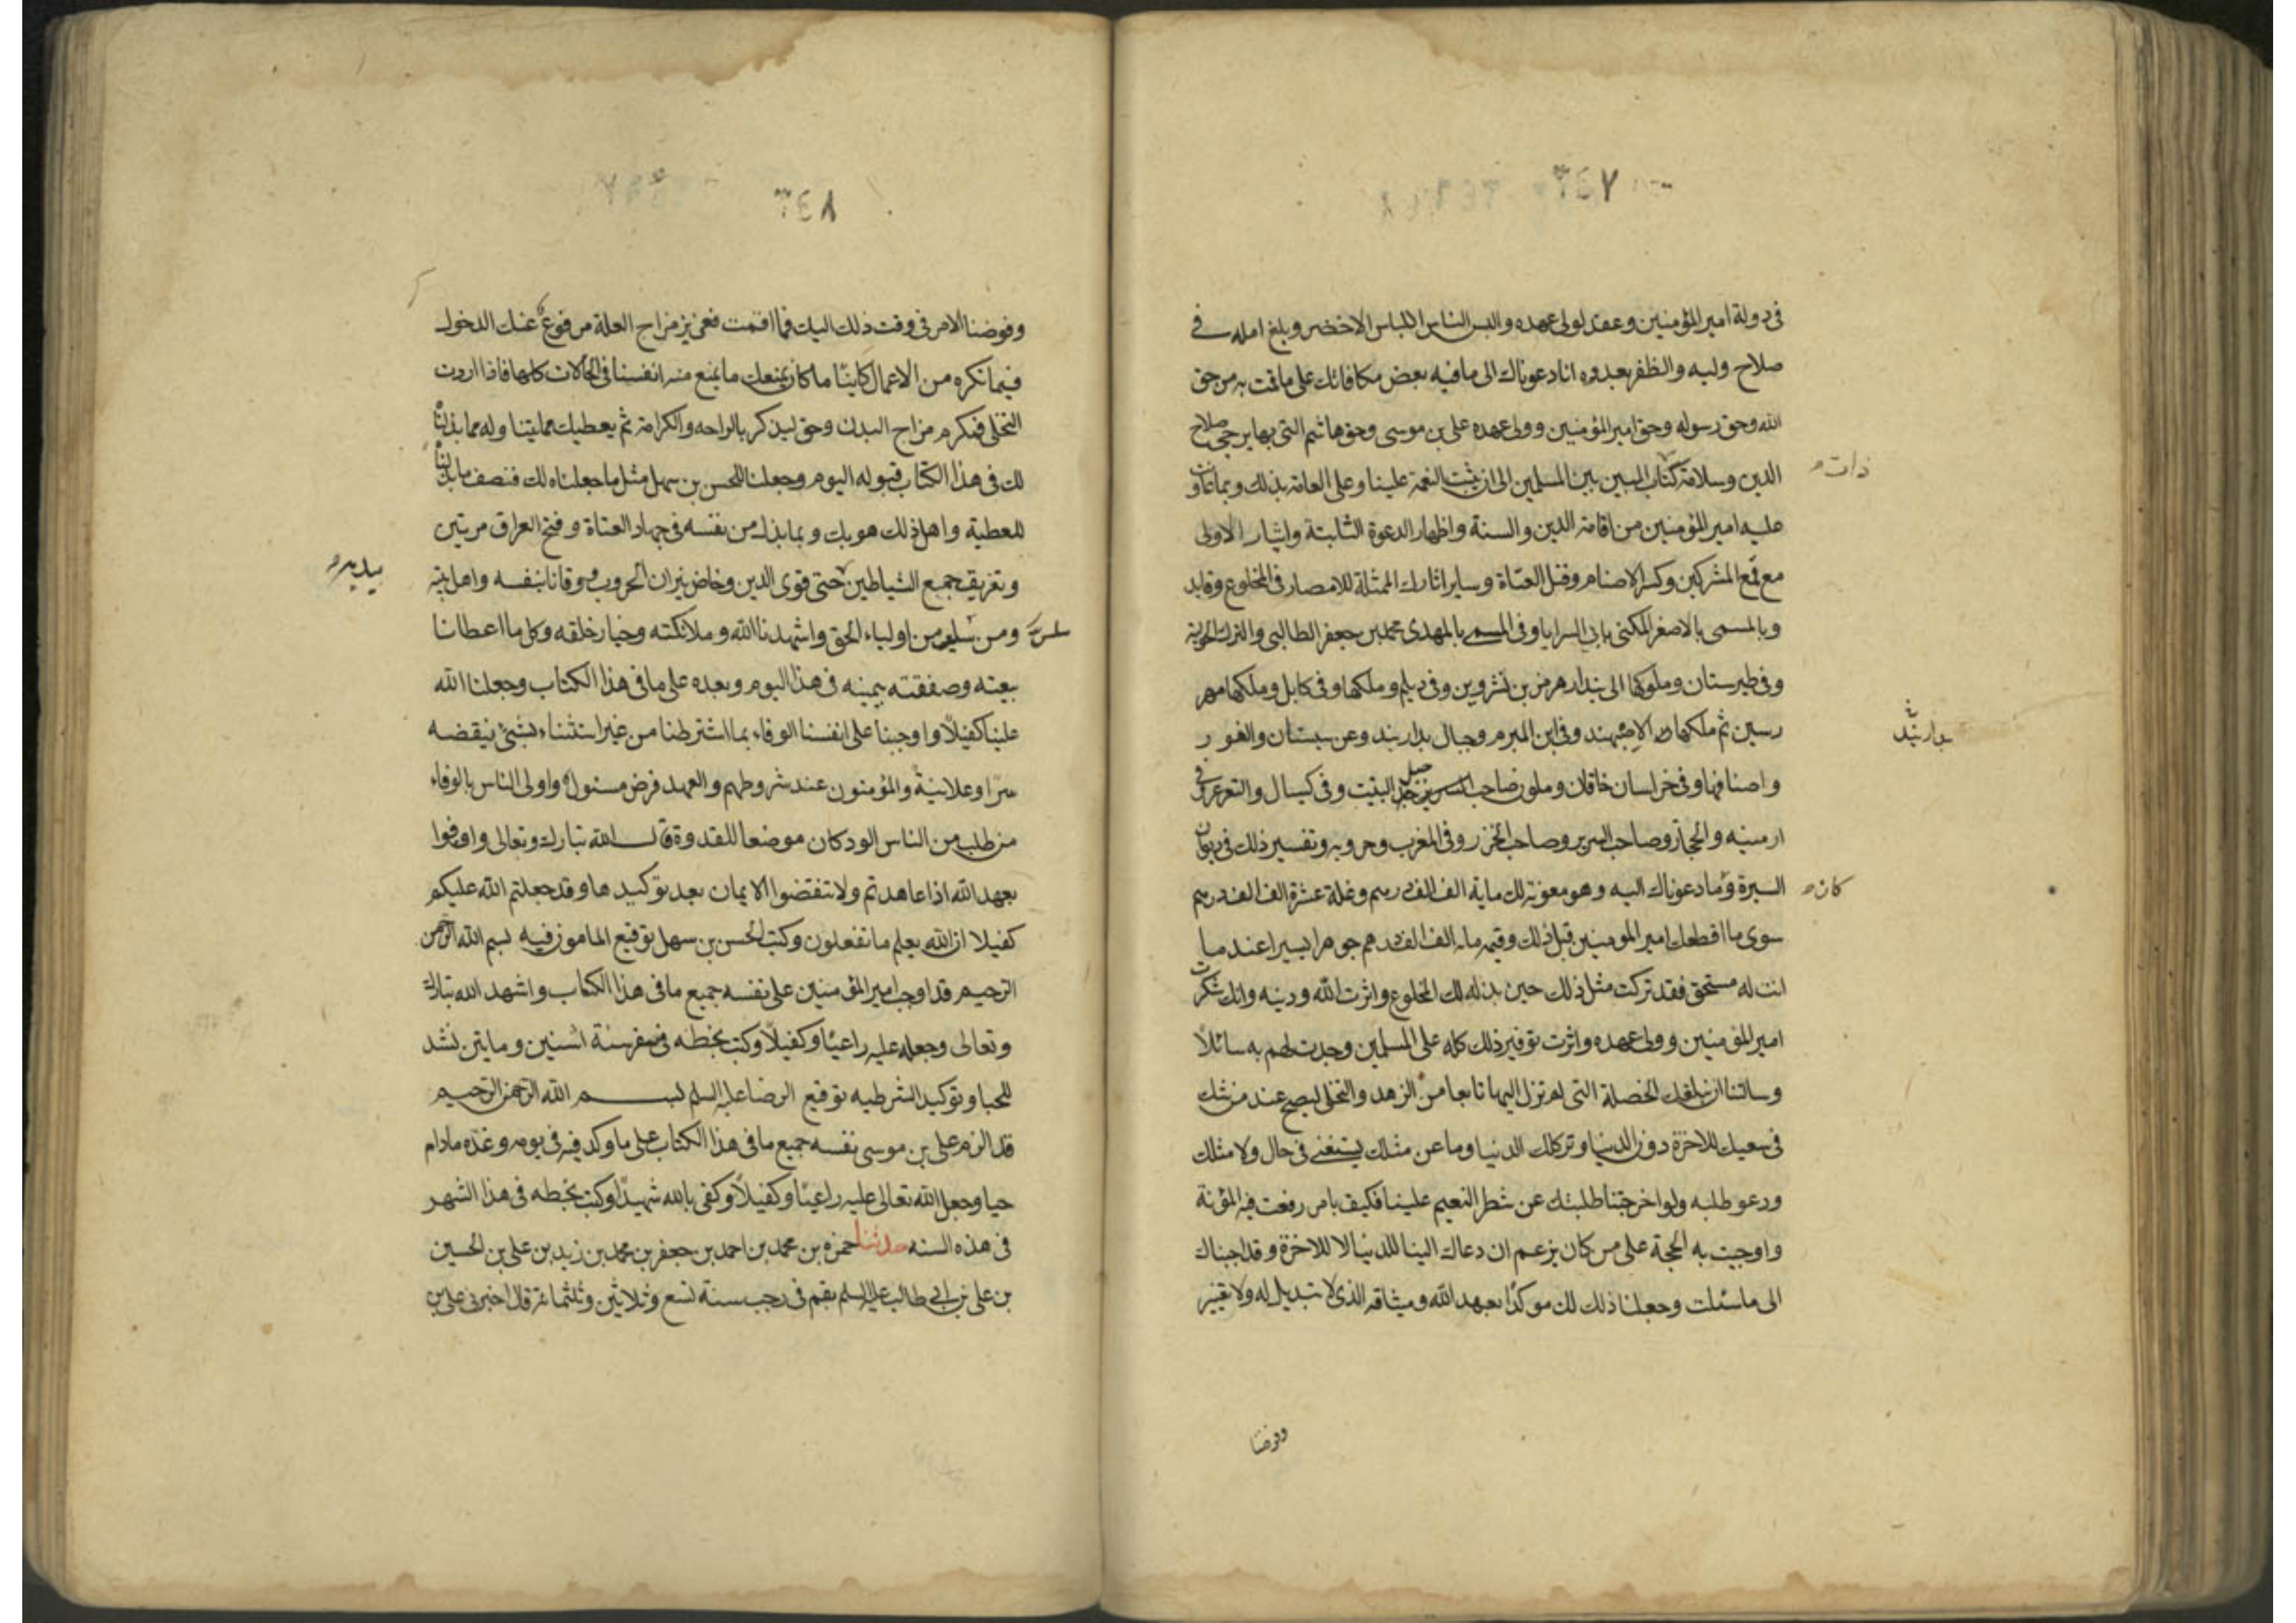 ٣٤٧
في دولة امير المؤمنين وعقد لولي عهده والبس الناس اللباس الاخضر وبلغ امله في
صلاح وليه والظفر بعدوه انا دعوناك الى ما فيه بعض مكافاتك على ما قمت به من حق
الله وحق رسوله وحق امير المؤمنين وولي عهده علي بن موسى وحق هاشم التي بها يرجى صلاح
الدين وسلامة ذات البين بين المسلمين الى ان ثبتت النعمة علينا وعلى العامة بذلك وبما عاونت
عليه امير المؤمنين من اقامة الدين والسنة واظهار الدعوة الثابتة وايثار الاولى
مع قمع المشركين وكسر الاصنام وقتل العتاة وساير اثارك الممثلة للامصار في المخلوع وقابل
وبالمسمى بالاصغر المكنى بابي السرايا وفي المسمى بالمهدي محمد بن جعفر الطالبي والترك الحولية
وفي طبرستان وملوكها الى بندار هرمز بن شروين وفي ديلم وملكها وفي كابل وملكها مهر
رسين ثم ملكها الاصبهبد وفي ابن المبرم وجبال بداربند وعن سبستان والغور
واصنافها وفي خراسان خاقان وملون صاحب جبل التبت وفي كيسال والتغرغر وفي
ارمنيه والحجاز وصاحب السرير وصاحب الخزر وفي المغرب وحروبه وتفسير ذلك في ديوان
السيرة وكان ما دعوناك اليه وهو معونة لك ماية الف الف درهم وغلة عشرة الف الف درهم
سوى ما اقطعك امير المومنين قبل ذلك وقيمه مايه الف الف درهم جوهرا يسيرا عندما
انت له مستحق فقد تركت مثل ذلك حين بذله لك المخلوع واثرت الله ودينه وانك شكرت
امير المؤمنين وولي عهده واثرت توفير ذلك كله على المسلمين وجدت لهم به سائلا
وسالتنا ان نبلغك الخصلة التي لم تزل اليها تابعا من الزهد والتخلي ليصح عند من شك
في سعيك للاخرة دون الدنيا وتركك الدنيا وما عن مثلك يستغنى في حال ولا مثلك
ورد عو طلبه ولو اخرجتنا طلبتك عن شطر النعيم علينا فكيف بامر رفعت فيه المؤنة
واوجبت به الحجة على من كان يزعم ان دعاك الينا للدنيا لا للاخرة وقد اجبناك
الى ما سئلت وجعلنا ذلك لك موكدا بعهد الله وميثاقه الذي لا تبديل له ولا تغيير
وفوضنا
٣٤٨
وفوضنا الامر في وقت ذلك اليك فما اقمت فعزيز مزاح العلة مرفوع عنك الدخول
فيما تكره من الاعمال كاينا ما كان نمنعك ما نمنع منه انفسنا في الحالات كلها فاذا اردت
التخلي فمكرم مزاح البدن وحق لبدنك بالراحه والكرامة ثم يعطيك مما يتناوله مما بذلنا
لك في هذا الكتاب قبوله اليوم وجعلنا للحسن بن سهل مثل ما جعلناه لك فنصف ما بذلنا
للعطية واهل ذلك هو بك وبما بذل من نفسه في جهاد العتاة وفتح العراق مرتين
وتفريق جمع الشياطين بيديه حتى قوى الدين وخاض نيران الحروب ووقانا بنفسه واهل بيته
ومن سلس من اولياء الحق واشهدنا الله وملائكته وخيار خلقه وكل ما اعطانا
بيعته وصفقته يمينه في هذا اليوم وبعده على ما في هذا الكتاب وجعلنا الله
علينا كفيلا واوجبنا على انفسنا الوفاء بما اشترطنا من غير استثناء بشيء ينقضه
سرا وعلانية والمؤمنون عند شروطهم والعهد فرض مسئول واولى الناس بالوفاء
من طلب من الناس الود كان موضعا للقدوة قال الله تبارك وتعالى واوفوا
بعهد الله اذا عاهدتم ولا تنقضوا الايمان بعد توكيدها وقد جعلتم الله عليكم
كفيلا ان الله يعلم ما تفعلون وكتب الحسن بن سهل توقيع المامون فيه بسم الله الرحمن
الرحيم قد اوجب امير المؤمنين على نفسه جميع ما في هذا الكتاب واشهد الله تبارك
وتعالى وجعله عليه راعيا وكفيلا وكتب بخطه في صفر سنة اثنين ومايتين نشد
للحبا وتوكيد الشرطيه توقيع الرضا عليه السلم بسم الله الرحمن الرحيم
قد الزم علي بن موسى نفسه جميع ما في هذا الكتاب على ما وكد فيه في يومه وغده ما دام
حيا وجعل الله تعالى عليه راعيا وكفيلا وكفى بالله شهيدا وكتب بخطه في هذا الشهر
في هذه السنه حدثنا حمزه بن محمد بن احمد بن جعفر بن محمد بن زيد بن علي بن الحسين
بن علي بن ابي طالب عليه السلم بقم في رجب سنة تسع وثلاثين وثلثمائة قال اخبرني علي بن